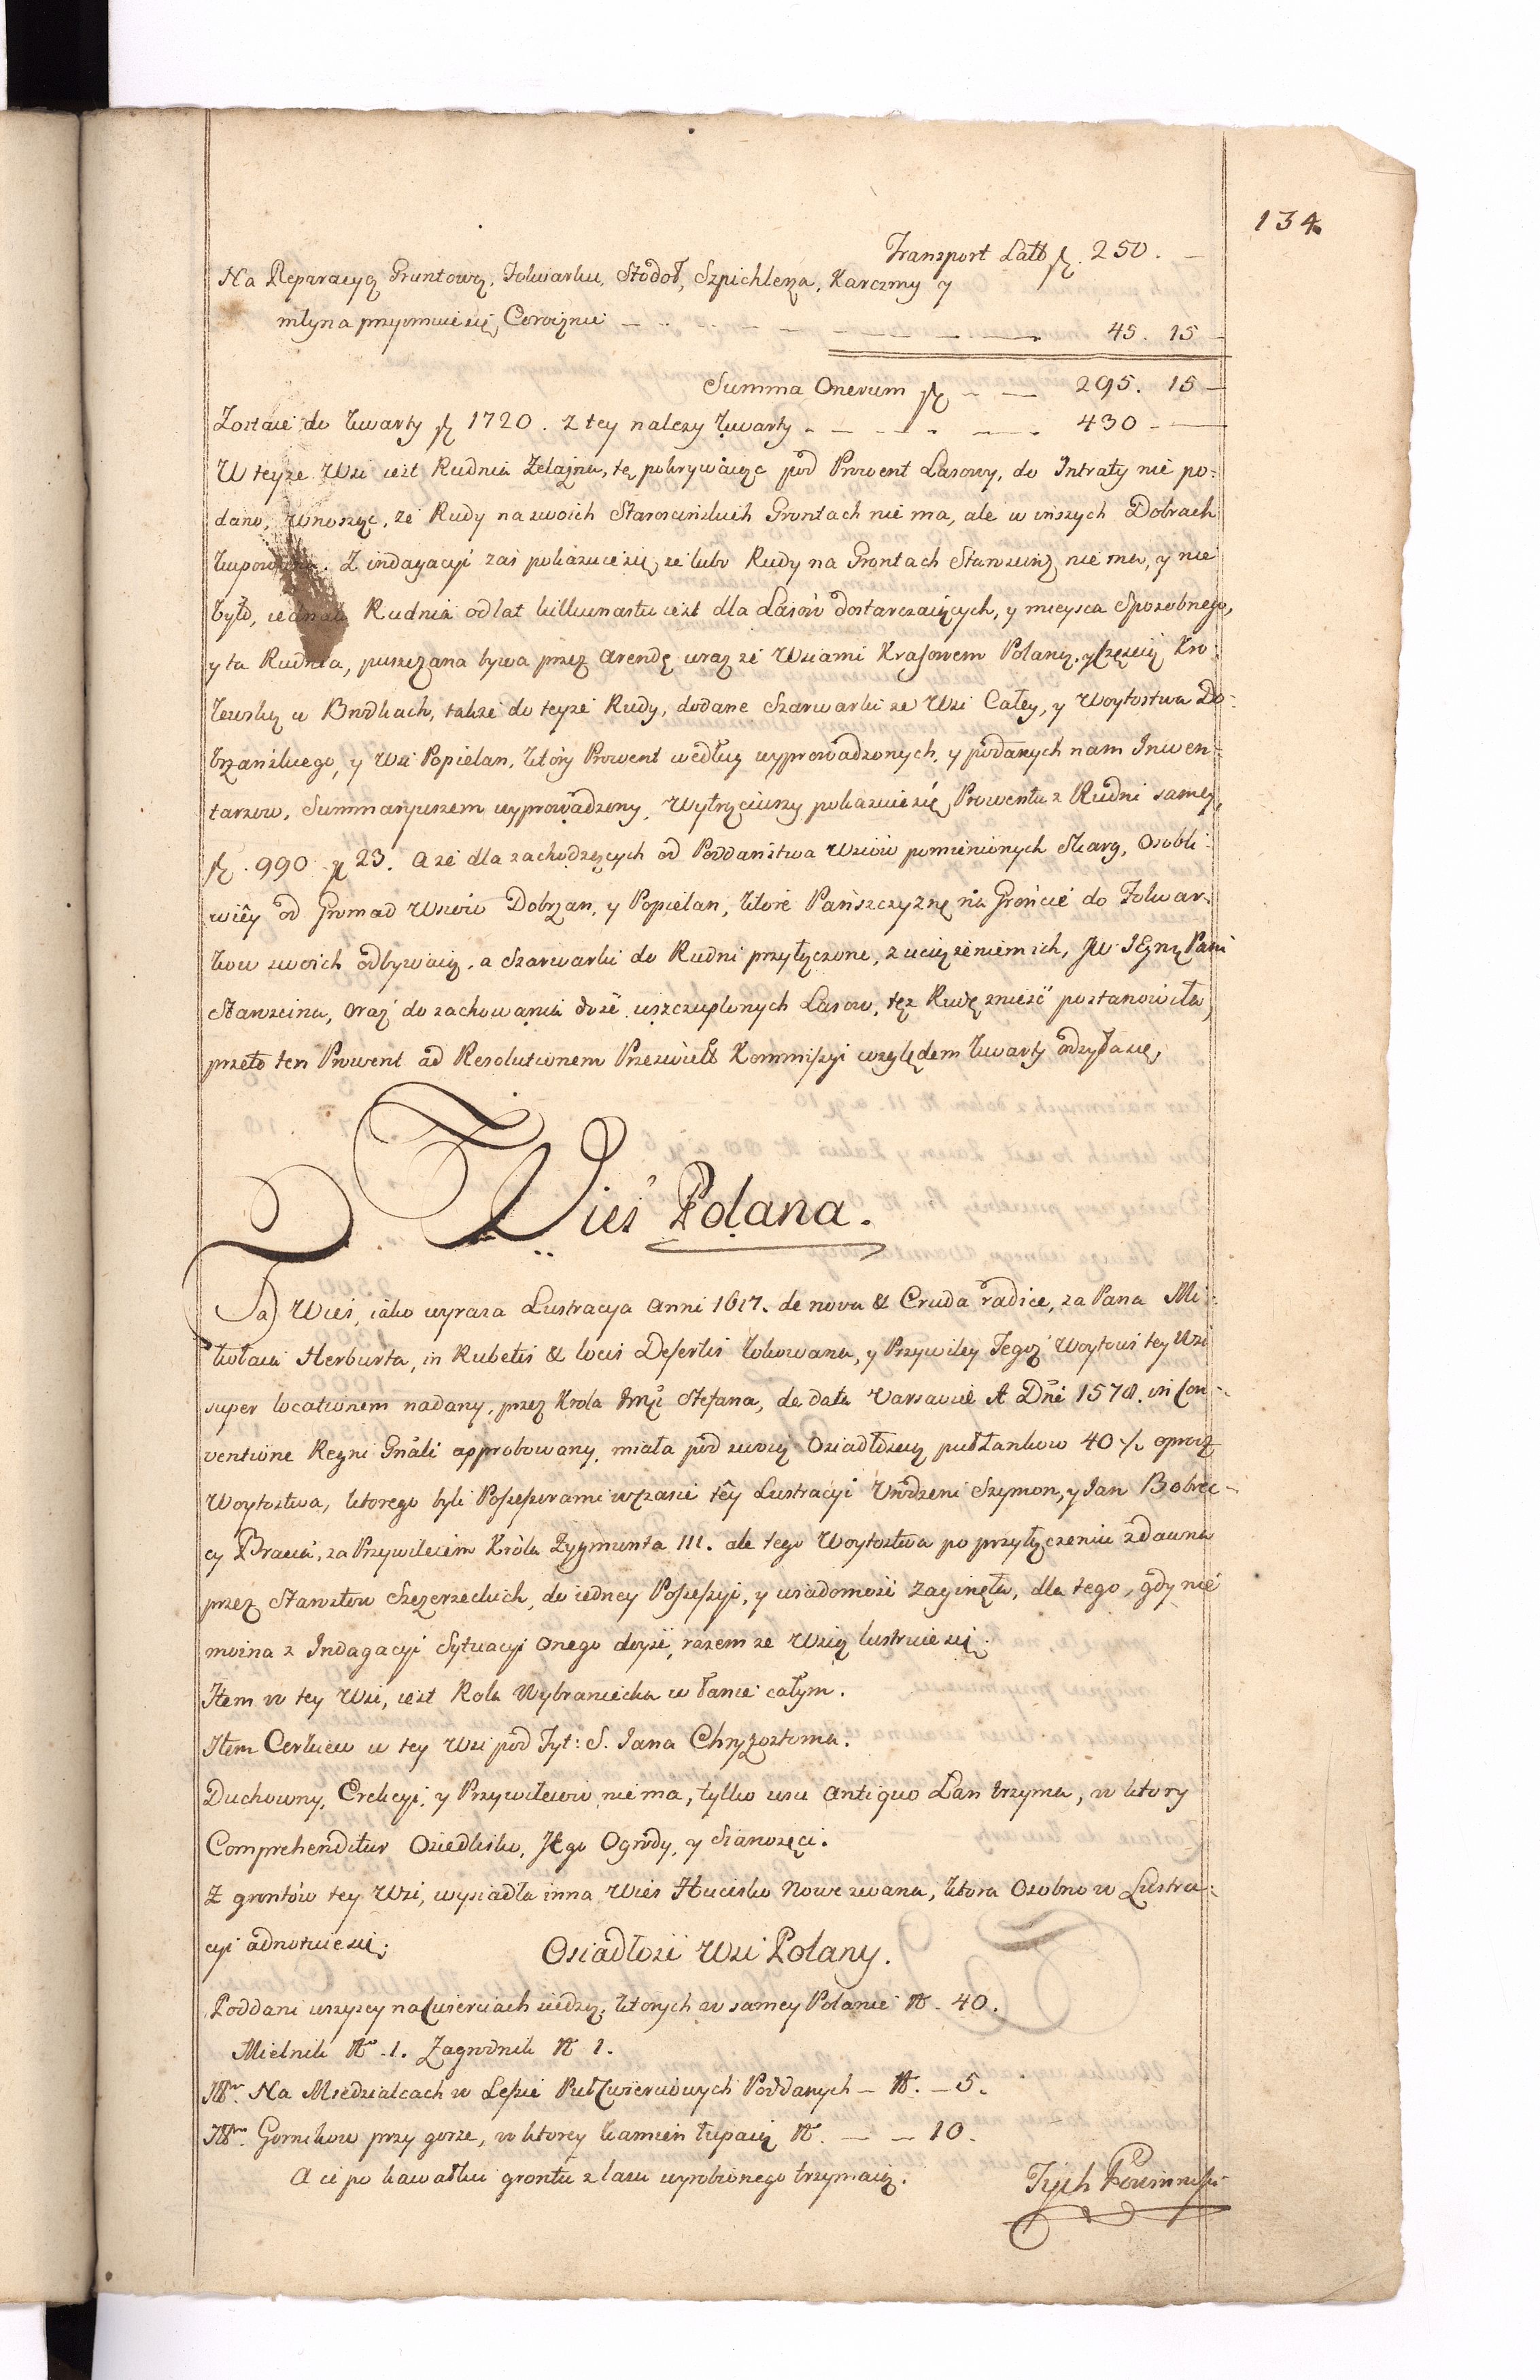 134.
Transport Latt fl. 250. —
Na Reparacyą Gruntową, Folwarku, Stodoł, Szpichlerza, Karczmy y
młyna przyimuie się Corocznie — — — 45. 15 —
Summa Onerum fl — — 295. 15 —
Zostaie do kwarty fl 1720. z tey należy kwarty — — — 430 —
W teyże Wsi iest Rudnia Żelazna, tę pokrywaiąc pod Prowent Lasowy, do Intraty nie po:
dano, wnosząc, że Rudy na swoich Starościńskich Grontach nie ma, ale w inszych Dobrach
kupowana. Z indagacyi zaś pokazuie się, że lubo Rudy na Grontach Starościnś nie ma, y nie
było, iednak Rudnia od lat kilkunastu iest dla Lasów dostarczaiących, y mieysca sposobnego,
y ta Rudnia, puszczana bywa przez Arendę wraz ze Wsiami Krasowem Polaną, y Częścią Kro:
lewską w Brodkach, także do teyże Rudy, dodane Szarwarki ze Wsi Całey, y Woytostwa Do:
brzańskiego, y Wsi Popielan, który Prowent według wyprowadzonych, y podanych nam Inwen:
tarzow, Summaryuszem wyprowadzony, Wytrąciwszy pokazuie się Prowentu z Rudni samey
fl. 990 g 23. a że dla zachodzących od Poddaństwa Wsiów pomienionych Skarg, Osobli:
wiêy od Gromad Wsiów Dobrzan, y Popielan, które Pańszczyznę na Gróncie do Folwar:
kow swoich odbywaią, a Szarwarki do Rudni przyłączone, z uciążeniem ich, JW JEgną Pani
Starościna, oraz do zachowania dość uszczuplonych Lasow, też Rudę znieść postanowiła,
przeto ten Prowent ad Resolutionem Prześwietł Kommissyi względem kwarty odsyła się,
Wieś Polana.
Ta Wieś, iako wyraża Lustracya Anni 1617. de nova & Cruda radice, za Pana Mi:
kołaia Herburta, in Rubetis & locis Desertis lokowana, y Przywiley Tegoż Woytowi tey Wsi
super locationem nadany, przez Krola Jmći Stefana, de data Varsavie A Dñi 1578. in Con:
ventione Regni Gnãli approbowany, miała pod swoią Osiadłością pułłankow 40 ½ oprocz
Woytostwa, ktorego byli Possessorami w czasie têy Lustracyi Urodzeni Szymon, y Jan Bobrec:
cy Bracia, za Przywileiem Króla Zygmunta III. ale tego Woytostwa po przyłączeniu zdawna
przez Starostow Szczerzeckich, do iedney Possessyi, y wiadomość zaginęła, dla tego, gdy nie
można z Indagacyi Sytuacyi onego doyść, razem ze Wsią lustruie się.
Item w tey Wsi, iest Rola Wybraniecka w łanie całym.
Item Cerkiew w tey Wsi pod Tyt: S. Jana Chryzostoma.
Duchowny, Erekcyi, y Przywileiow nie ma, tylko usu antiquo Łan trzyma, w ktory
Comprehenditur Osiedlisko, Jego Ogrody, y Sianozęci.
Z grontów tey Wsi, wysiadła inna Wieś Hucisko Nowe zwana, ktora Osobno w Lustra:
cyi adnotuie się;
Osiadłość Wsi Polany.
Poddani wszyscy na Cwierciach siedzą, ktorych w samey Polanie No. 40.
Mielnik No. 1. Zagrodnik No 1.
Itm. Na Miedziakach w Lesie Puł Cwierciowych Poddanych — No. — 5.
Itm. Gornikow przy gorze, w ktorey kamień łupaią No. — — 10.
A ci po kawałku grontu z lasu wyrobionego trzymaią.
Tych